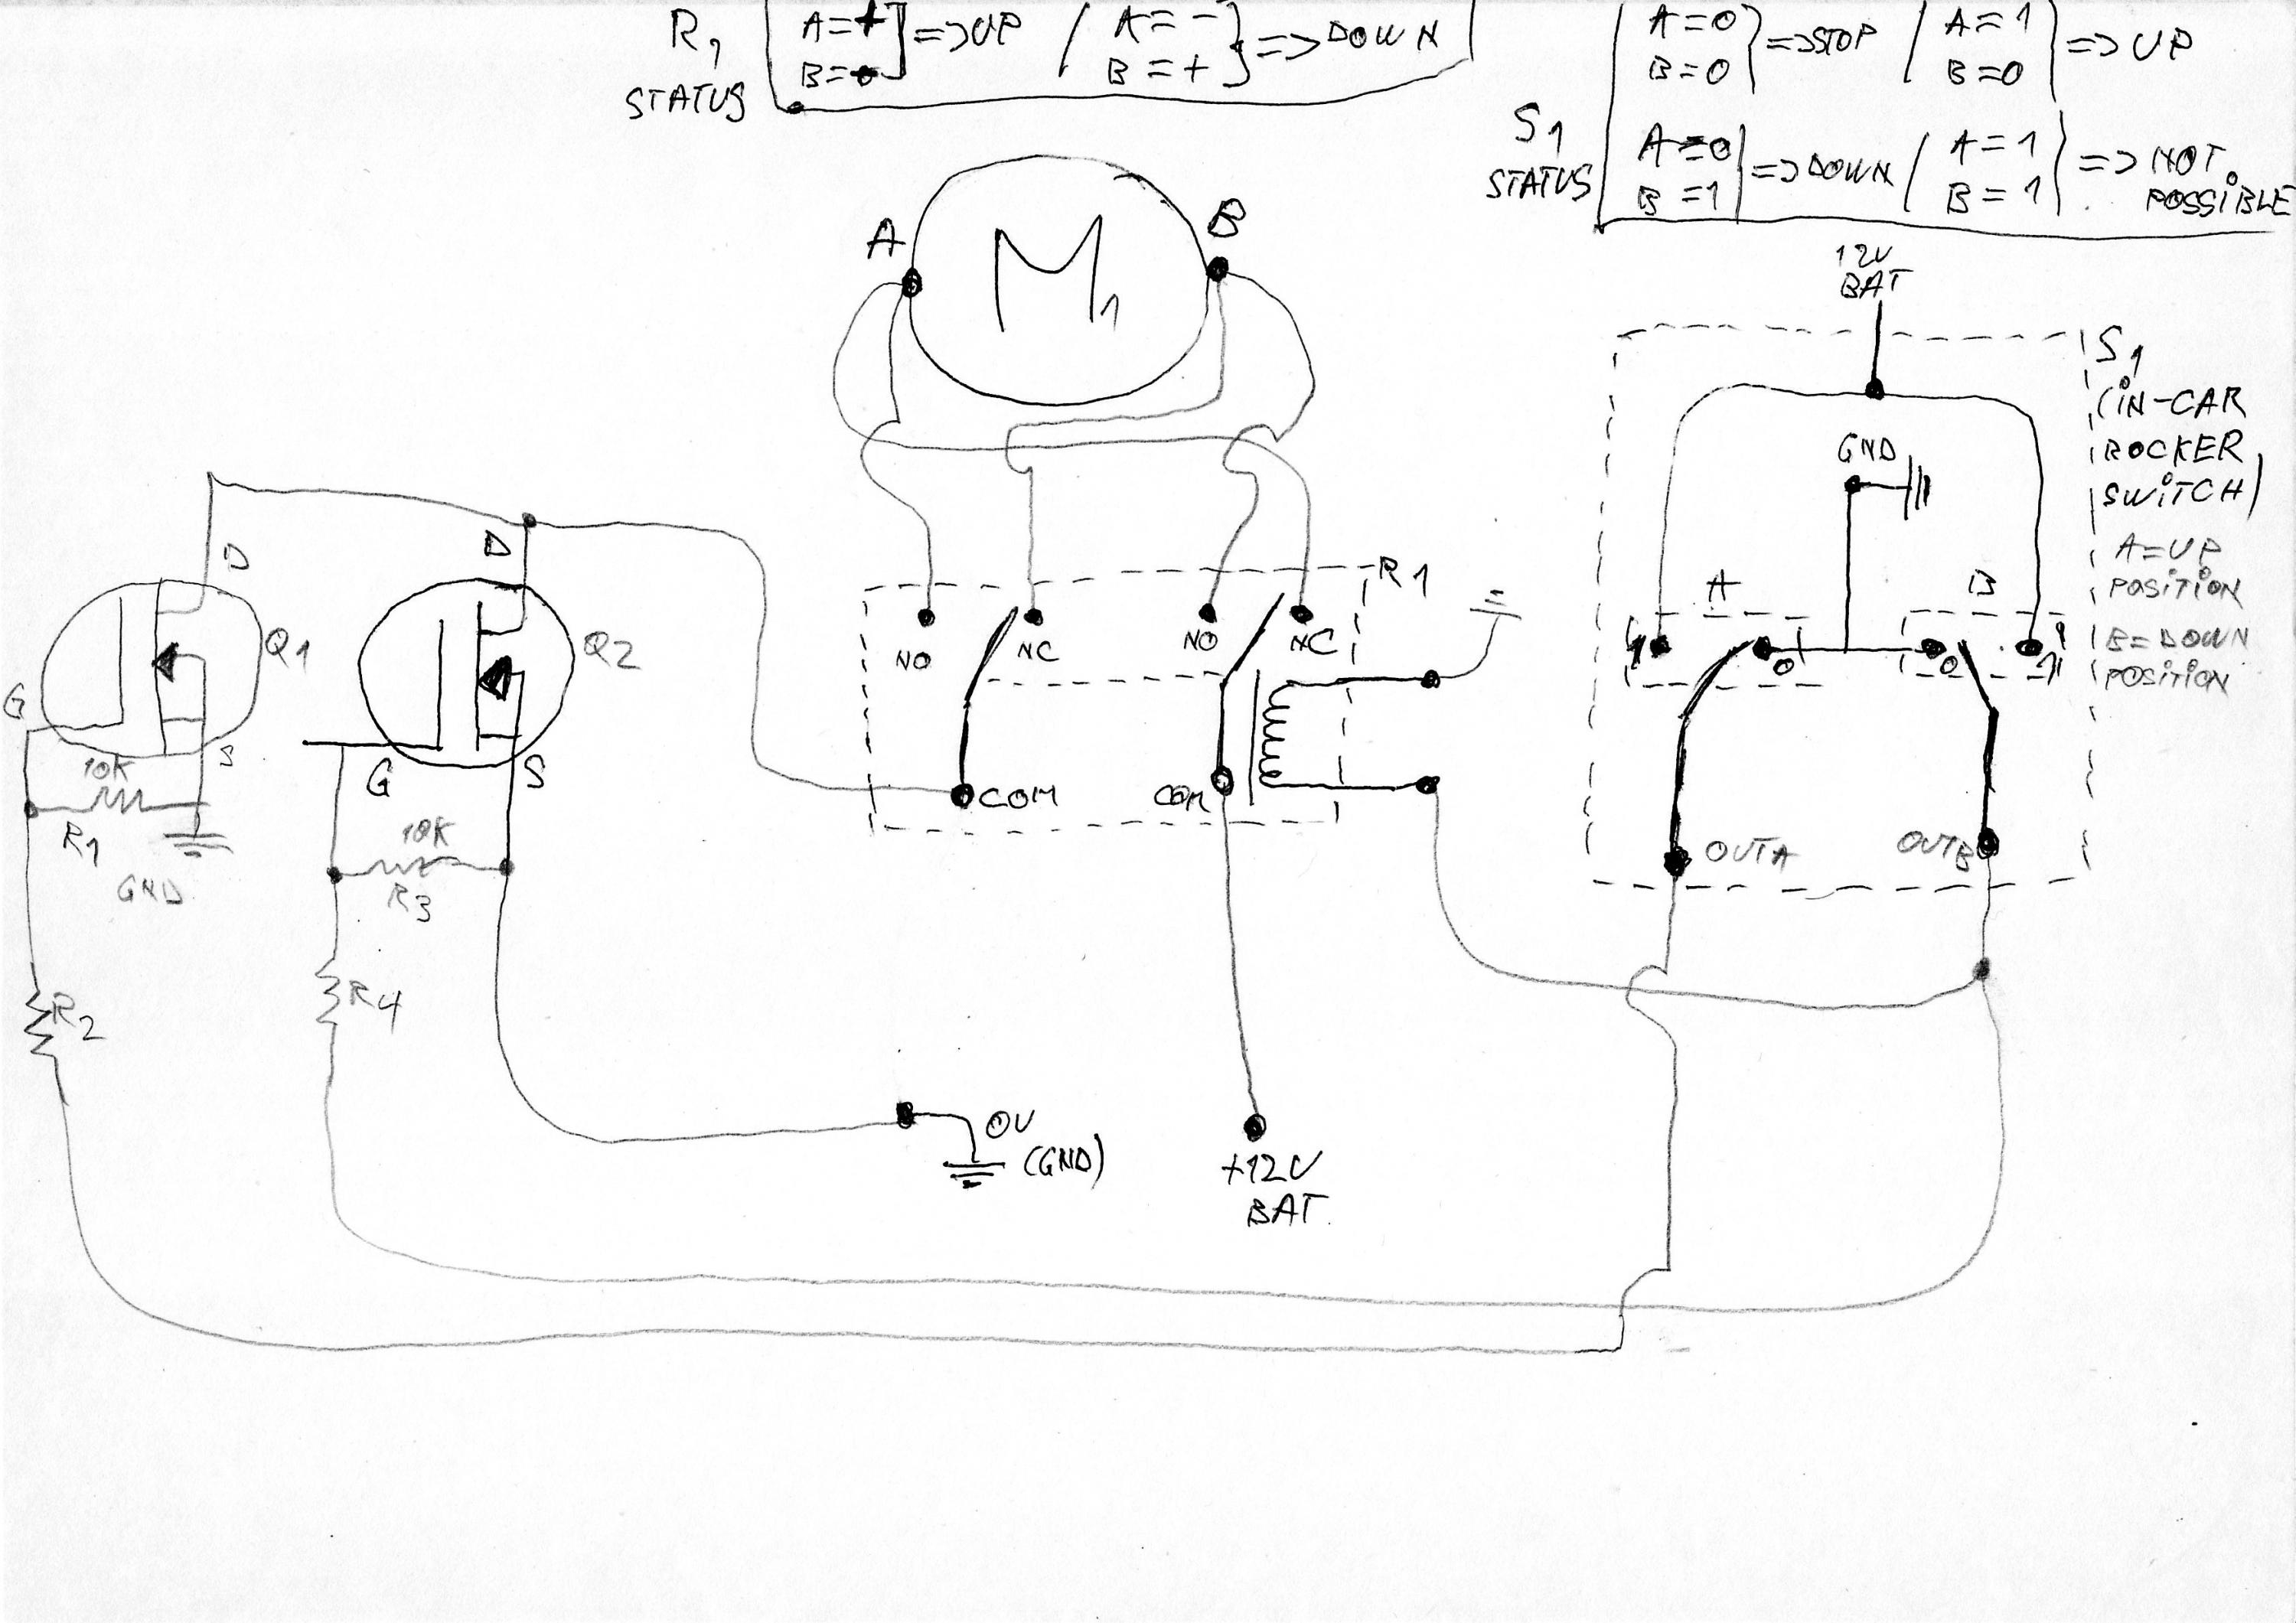 R1
STATUS
A=+
B=-
=>UP
/
A=-
B=+
=>DOWN
S1
STATUS
A=0
B=0
=>STOP
/
A=1
B=0
=>UP
A=0
B=1
=>DOWN
/
A=1
B=1
=>NOT
POSSIBLE
A
M1
B
12V
BAT
S1
(iN-CAR
ROCKER
SWiTCH)
A=UP
POSiTiON
B=DOWN
POSiTiON
GND
A
B
1
0
0
1
OUTA
OUTB
D
Q1
G
S
10K
R1
GND
R2
D
Q2
G
S
10K
R3
R4
R1
NO
NC
NO
NC
COM
COM
0V
(GND)
+12V
BAT